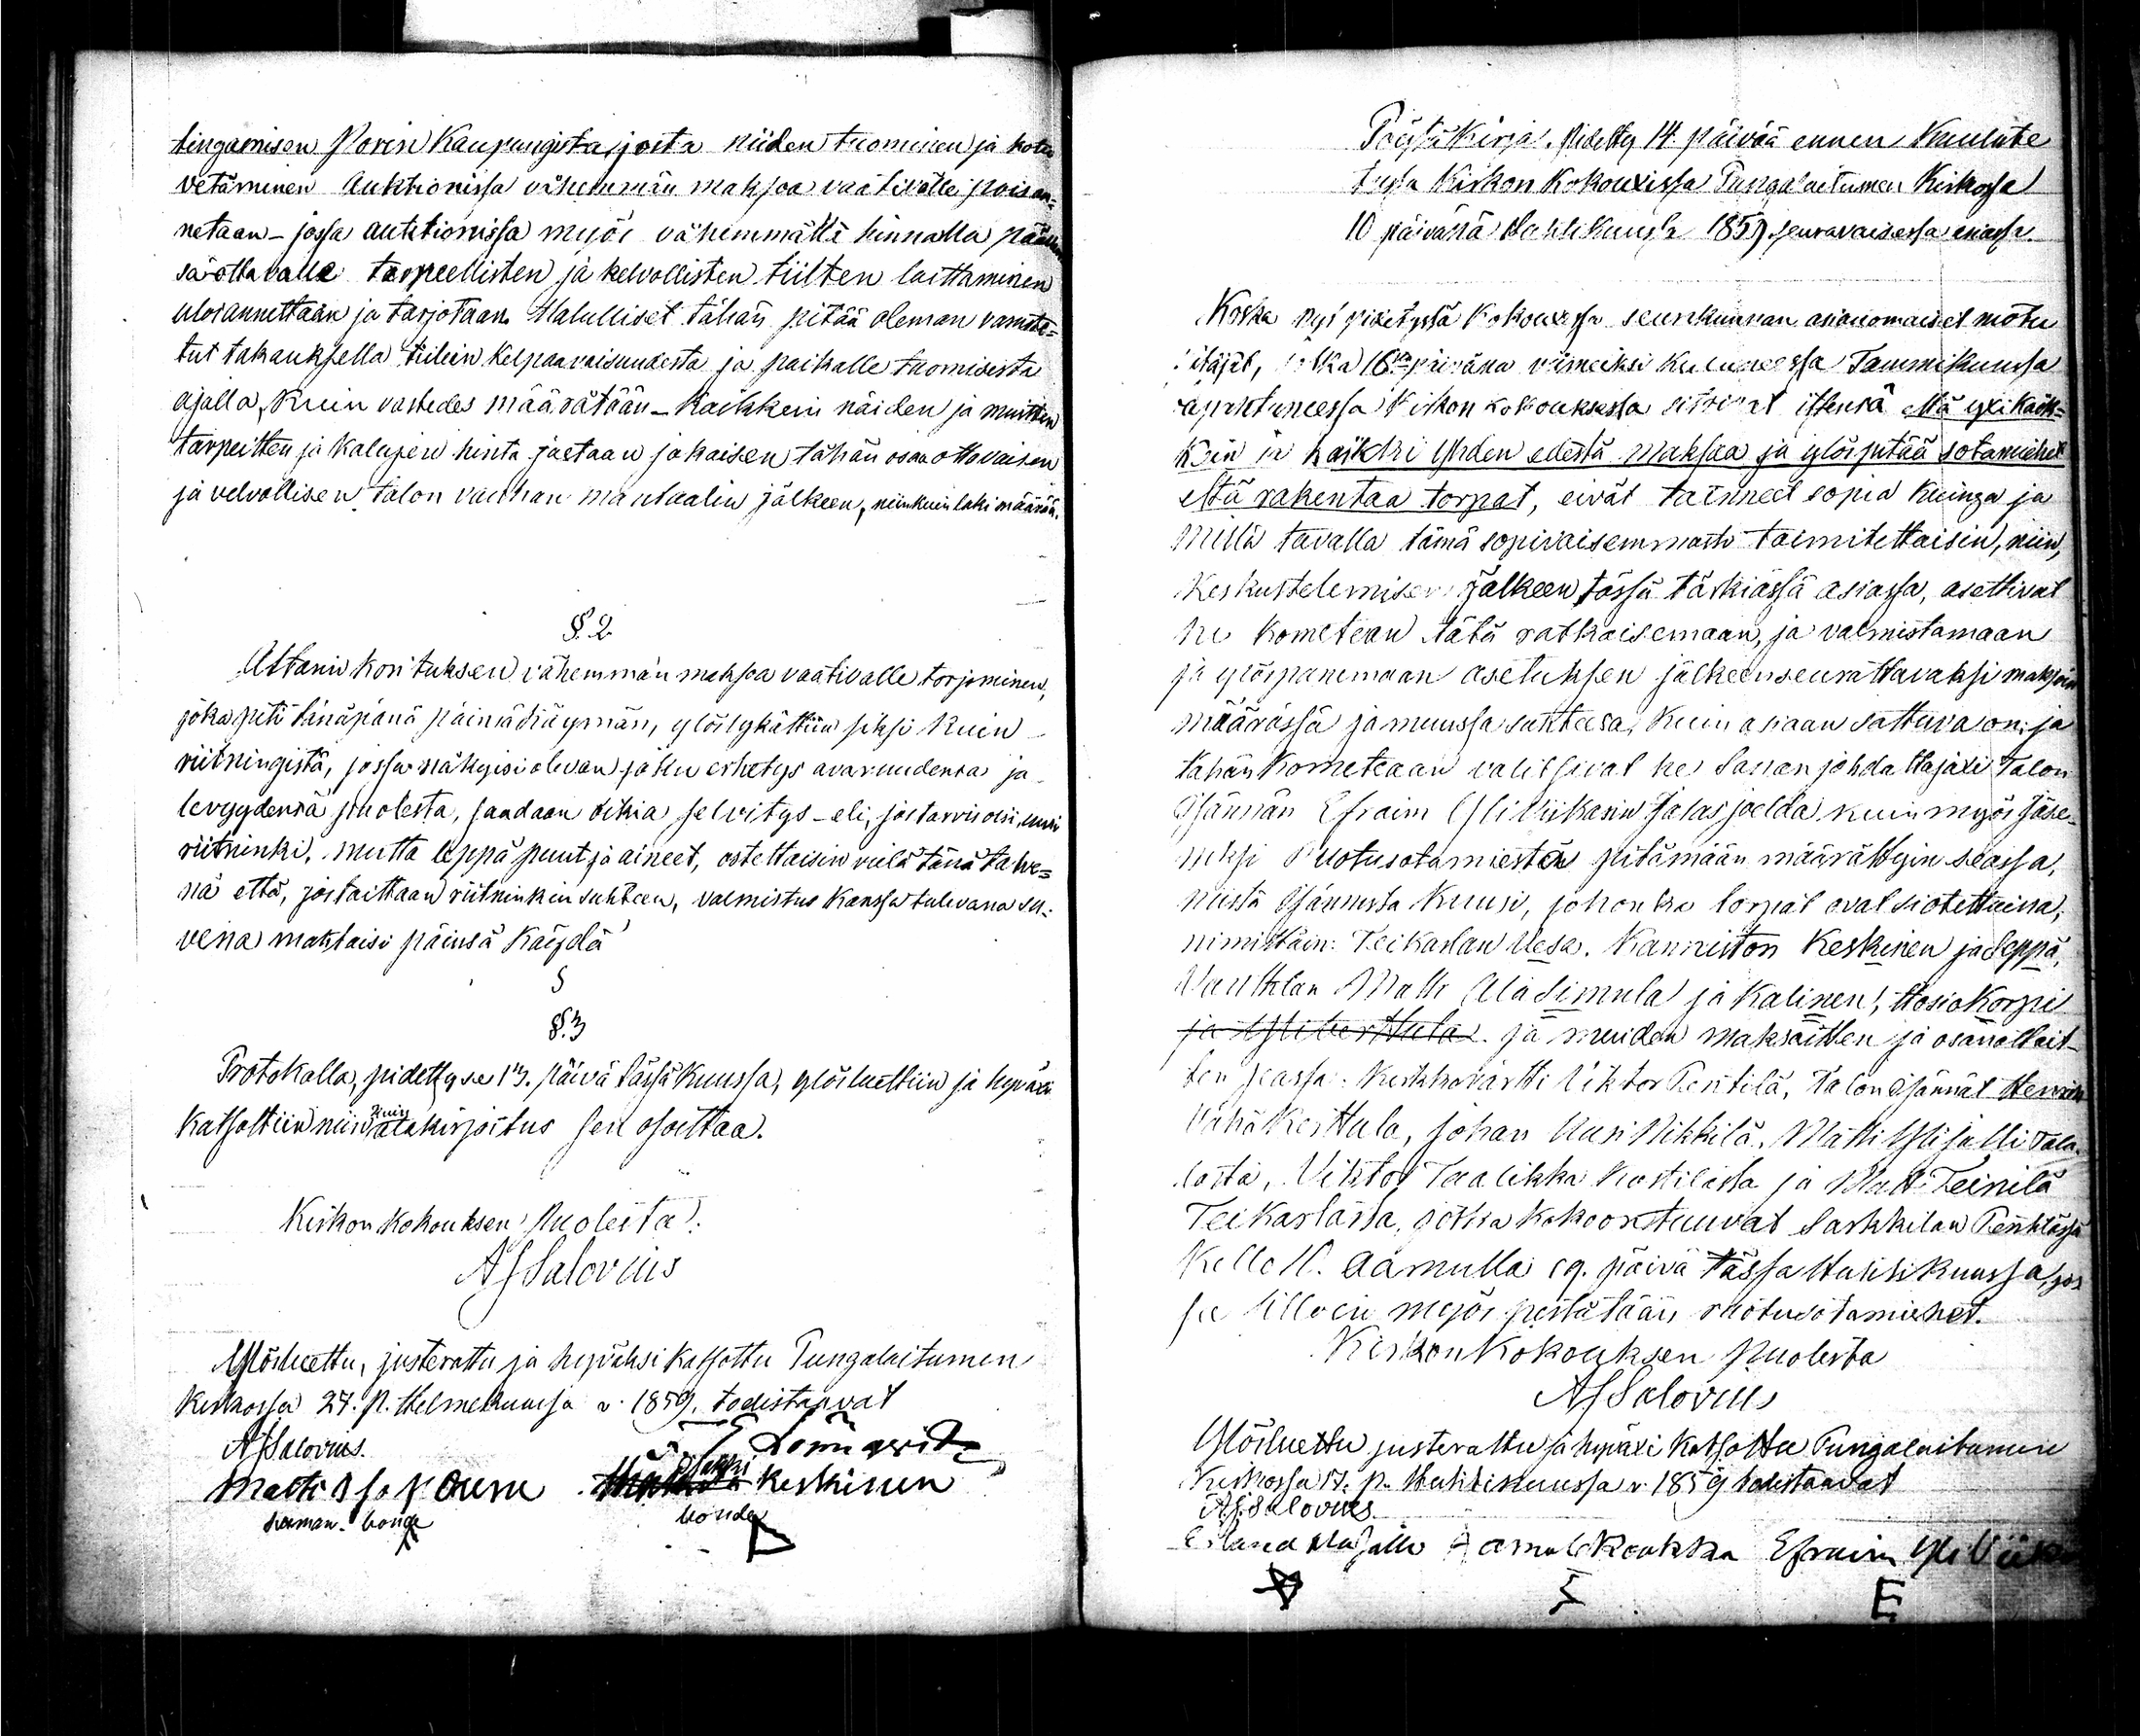 tingamisen Porin Kaupungista, josta niiden tuominen ja kotia
vetäminen Auktionissa vähemmän maksoa vaativalle poisan=
netaan - jossa auktionissa myös vähemmällä hinnalla
tarpeellisten ja kelvollisten tiilten laittaminen
ulosannettaan ja tarjotaan. Halulliset tähän pitää oleman varuste=
tut takauksella tiilein kelpaavaisuudesta ja paikalle tuomisesta
ajalla, kuin vastedes määrätään - Kaikkein näiden ja muitten
tarpeitten ja kalujen hinta jaetaan jokaisen tähän osaa ottavaisen
ja velvollisen talon vanhan mantaalin jälkeen, niinkuin laki määrää.
§. 2
Altanin korituksen vähemmän maksoa vaativalle torjominen,
joka piti tänäpänä päinsäkäymän, ylöslykättiin siksi kuin
riitningistä, jossa näkyisi olevan joku erhetys avaruudensa ja
levyydensä puolesta, saadaan oikia selvitys - eli, jos tarvis olisi, uusi
riitninki, mutta leppä puut ja aineet, ostettaisiin vielä tänä talve=
nä että, jos taittaan riitninkin suhteen, valmistus kanssa tulevana su-
vena mahtaisi päinsä käydä
§
§. 3
Protokalla, pidetty se 13. päivä tässä kuussa, ylösluettiin ja hyväxi
katsottiin niin kuin alakirjoitus sen osoittaa.
Kirkon Kokouksen Puolesta:
AfSalovius
Ylösluettu, justerattu ja hyväksi katsottu Pungalaitumen
Kirkossa 27. p. Helmekuussa v. 1859, todistaavat
AfSalovius.
Matti Keskinen
bonde bonde
Pöytäkirja, Pidetty 14 päivää ennen Kuulute
tussa Kirkon Kokouxissa Pungalaitumen Kirkossa
10 päivänä Huhtikuussa 1859, seuravaisessa asiassa.
Koska nyt pidetyssä Kokouxessa seurakunnan asianomaiset
jotka 16 päivänä viimeiksi kuluneessa Tammikuussa
tapahtuneessa Kirkon kokouksessa sitoivat itsensä että yxi kaik=
kein ja kaikki yhden edestä maksaa ja ylöspitää sotamiehet
että rakentaa torpat, eivät tainneet sopia kuinga ja
millä tavalla tämä sopivaisemmasti toimitettaisiin, niin,
Keskustelemisen jälkeen tässä tärkiässä asiassa, asettivat
he kometean tätä ratkaisemaan, ja valmistamaan
ja ylöspanemaan asetuksen jälkeenseurattavaksi makson
määrässä ja muussa suhteesa, kuin asiaan sattuva on: ja
tähän Kometeaan valitsivat he Sananjohdattajaxi Talon
Isännän Efraim Yli Viikarin Jalasjoelda kuin myös Jäse-
niksi Ruotusotamiestän pitämään määrättyin seassa,
niistä Isännistä kuusi, johonka torpat ovat siotettuina,
nimittäin: Teikarlan Uesa. Kanniston Keskinen ja Seppä,
Matti Ala Simula ja Kalinen, Hosiokorpi
ja Yli Kerttula. ja muiden maksaitten ja osanottait-
ten seassa: Kirkkovärtti Viktor Pentilä, Talon Isännät Henrik
Vähä Kerttula, Johan Uusi Nikkilä, Matti Yli Jalli Tala-
lasta, Viktor Taalikka ja Matti Teinilä
Teikarlassa, jotka kokoontuuvat Sarkkilan Penttilässä
Kello 11. Aamulla 19. päivä tässä Huhtikuussa, jos
sa silloin myös pestätään ruotusotamiehet.
Kirkon Kokouksen Puolesta
AfSalovius
Ylösluettu justerattu ja hyväxi katsottu Pungalaitumen
Kirkossa 17. p. Huhtikuussa v. 1859 todistaavat
Af:Salovius.
Efraim Yli Viikari
E